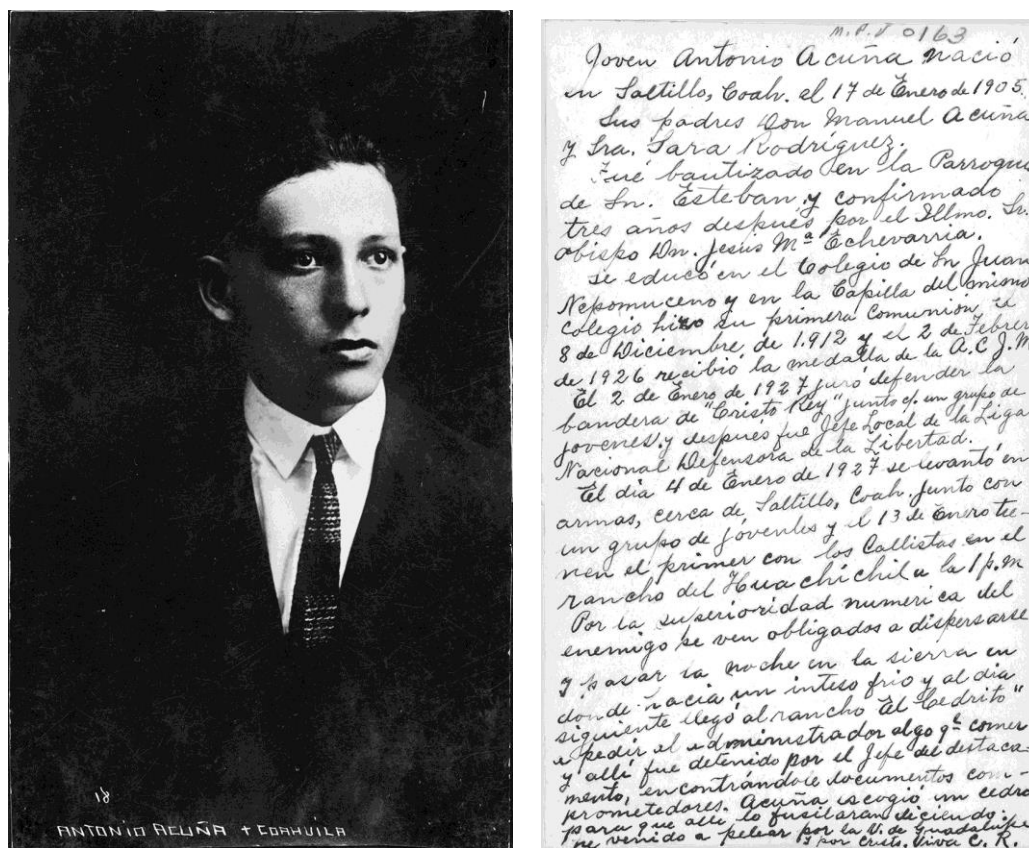 18
ANTONIO ACUÑA + COAHUILA
M.P.J 0163
Joven Antonio Acuña nació
en Saltillo, Coah. el 17 de Enero de 1905.
Sus padres Don Manuel Acuña
y Sra. Sara Rodríguez.
Fué bautizado en la Parroqui
de Sn. Esteban y confirmado
tres años después por el Illmo. Sr.
obispo Dn. Jesús Mª Echevarria.
Se educó en el Colegio de Sn Juan
Nepomuceno y en la Capilla del mismo
colegio hizo su primera Comunión el
8 de Diciembre de 1.912 y el 2 de Febrer
de 1926 recibió la medalla de la A.C.J.M
El 2 de Enero de 1927 juró defender la
bandera de "Cristo Rey" junto c/. un grupo de
jovenes y después fué Jefe Local de la Liga
Nacional Defensora de la Libertad.
El dia 4 de Enero de 1927 se levantó en
armas, cerca de Saltillo, Coah. junto con
un grupo de jóvenes y el 13 de Enero tie-
nen el primer con los Callistas en el
rancho del Huachichil a la 1 p.m
Por la superioridad numerica del
enemigo se ven obligados a dispersarse
y pasar la noche en la sierra en
donde hacia un inteso frio y al dia
siguiente llegó al rancho "El Cedrito"
a pedir al administrador algo q^e comer
y allí fue detenido por el Jefe del destaca-
mento, encontrándole documentos com-
prometedores. Acuña escogió un cedro
para que allí lo fusilaran diciendo:
he venido a pelear por la V. de Guadalupe
y por Cristo. Viva C. R.